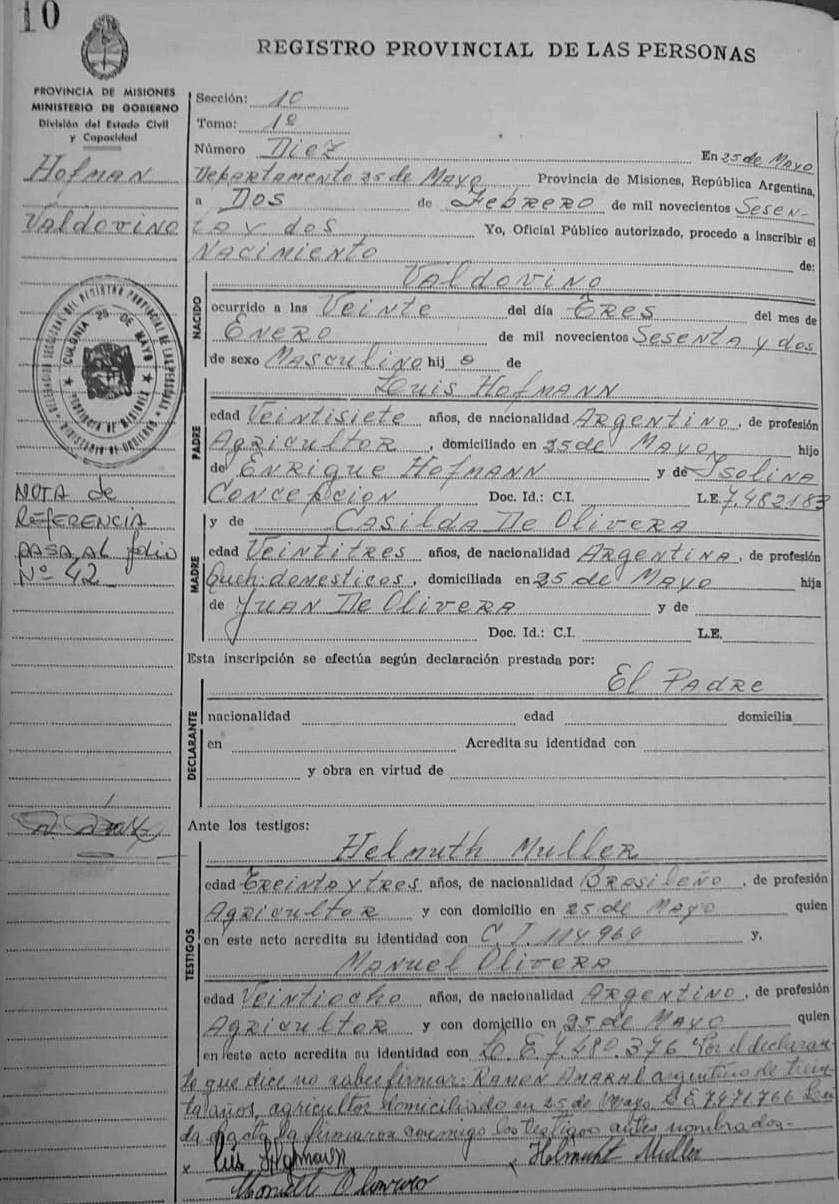 10
REGISTRO PROVINCIAL DE LAS PERSONAS
PROVINCIA DE MISIONES
MINISTERIO DE GOBIERNO
División del Estado Civil
y Capacidad
Hofman
Valdovino
COLONIA 25 DE MAYO
PROVINCIA DE MISIONES
NOTA de
REFERENCIA
PASA AL folio
Nº 42
Sección: 10
Tomo: 1º
Número Diez En 25 de Mayo
Departamento 25 de Mayo Provincia de Misiones, República Argentina,
a Dos de Febrero de mil novecientos Sesen-
ta y dos Yo, Oficial Público autorizado, procedo a inscribir el
Nacimiento de:
NACIDO
Valdovino
ocurrido a las Veinte del día Tres del mes de
Enero de mil novecientos Sesenta y dos
de sexo Masculino hij o de
PADRE
Luis Hofmann
edad Veintisiete años, de nacionalidad Argentino, de profesión
Agricultor, domiciliado en 25 de Mayo hijo
de Enrique Hofmann y de Isolina
Concepcion Doc. Id.: C.I. L.E. 7.482183
MADRE
y de Casilda De Olivera
edad Veintitres años, de nacionalidad Argentina, de profesión
Queh. domesticos, domiciliada en 25 de Mayo hija
de Juan De Olivera y de
Doc. Id.: C.I. L.E.
Esta inscripción se efectúa según declaración prestada por:
El Padre
DECLARANTE
nacionalidad edad domicilia
en Acredita su identidad con
y obra en virtud de
Ante los testigos:
TESTIGOS
Helmuth Muller
edad Treinta y tres años, de nacionalidad Brasileño, de profesión
Agricultor y con domicilio en 25 de Mayo quien
en este acto acredita su identidad con C. I. 114.964 y,
Manuel Olivera
edad Veintiocho años, de nacionalidad Argentino, de profesión
Agricultor y con domicilio en 25 de Mayo quien
en este acto acredita su identidad con L. E. 7.480.376 Por el declaran-
te que dice no saber firmar: Ramon Amaral argentino de trein-
ta años, agricultor domiciliado en 25 de Mayo L E 7471766 Lei-
da el acta la firmaron conmigo los testigos antes nombrados.-
Helmuht Muller